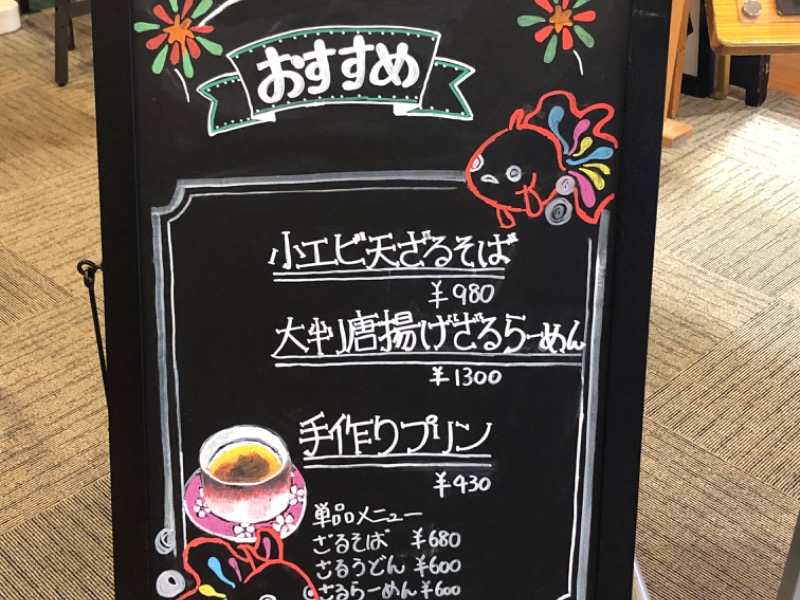 おすすめ
小エビ天ざるそば
¥980
大判唐揚げざるらーめん
¥1300
手作りプリン
¥430
単品メニュー
ざるそば ¥680
ざるうどん ¥600
ざるらーめん ¥600